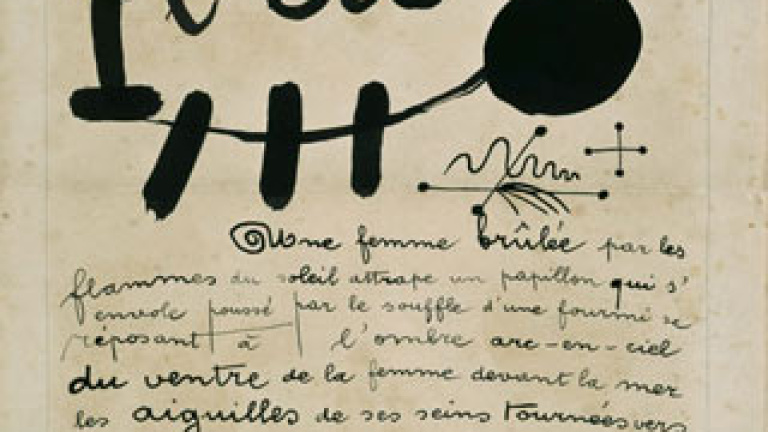 Une femme brûlée par les
flammes du soleil attrape un papillon qui s'
envole poussé par le souffle d'une fourmi se
réposant à l'ombre arc-en-ciel
du ventre de la femme devant la mer
les aiguilles de ses seins tournées vers